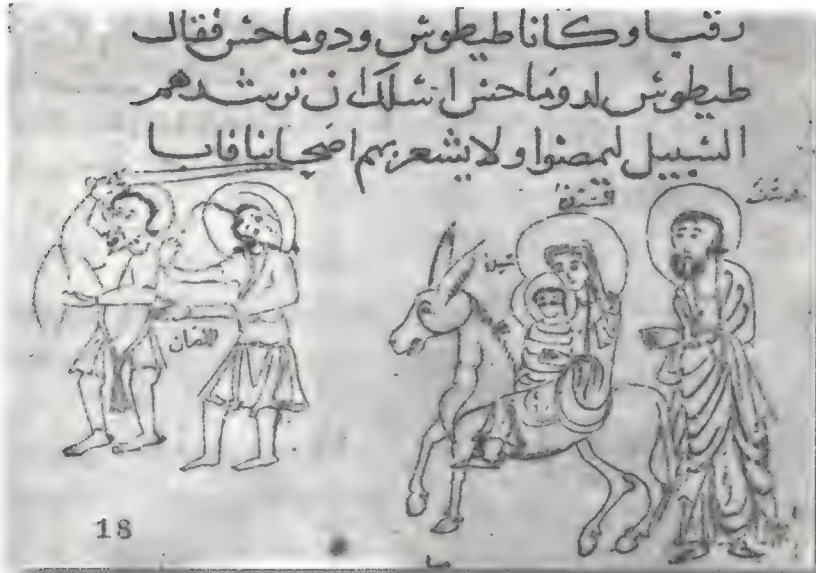 رقبا وكانا طيطوش ودوماحش فقال
طيطوش لدوماحش اسلك ان ترشدهم
السبيل ليمضوا ولا يشعر بهم اصحابنا فابا
يوسف
السيده
اللصان
18